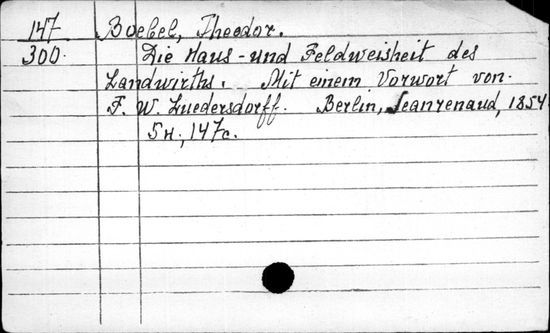 147 Boebel, Theodor.
300. Die Haus- und Feldweisheit des
Landwirths. Mit einem Vorwort von
F. W. Luedersdorff. Berlin, Jeanrenaud, 1854
5н., 147с.